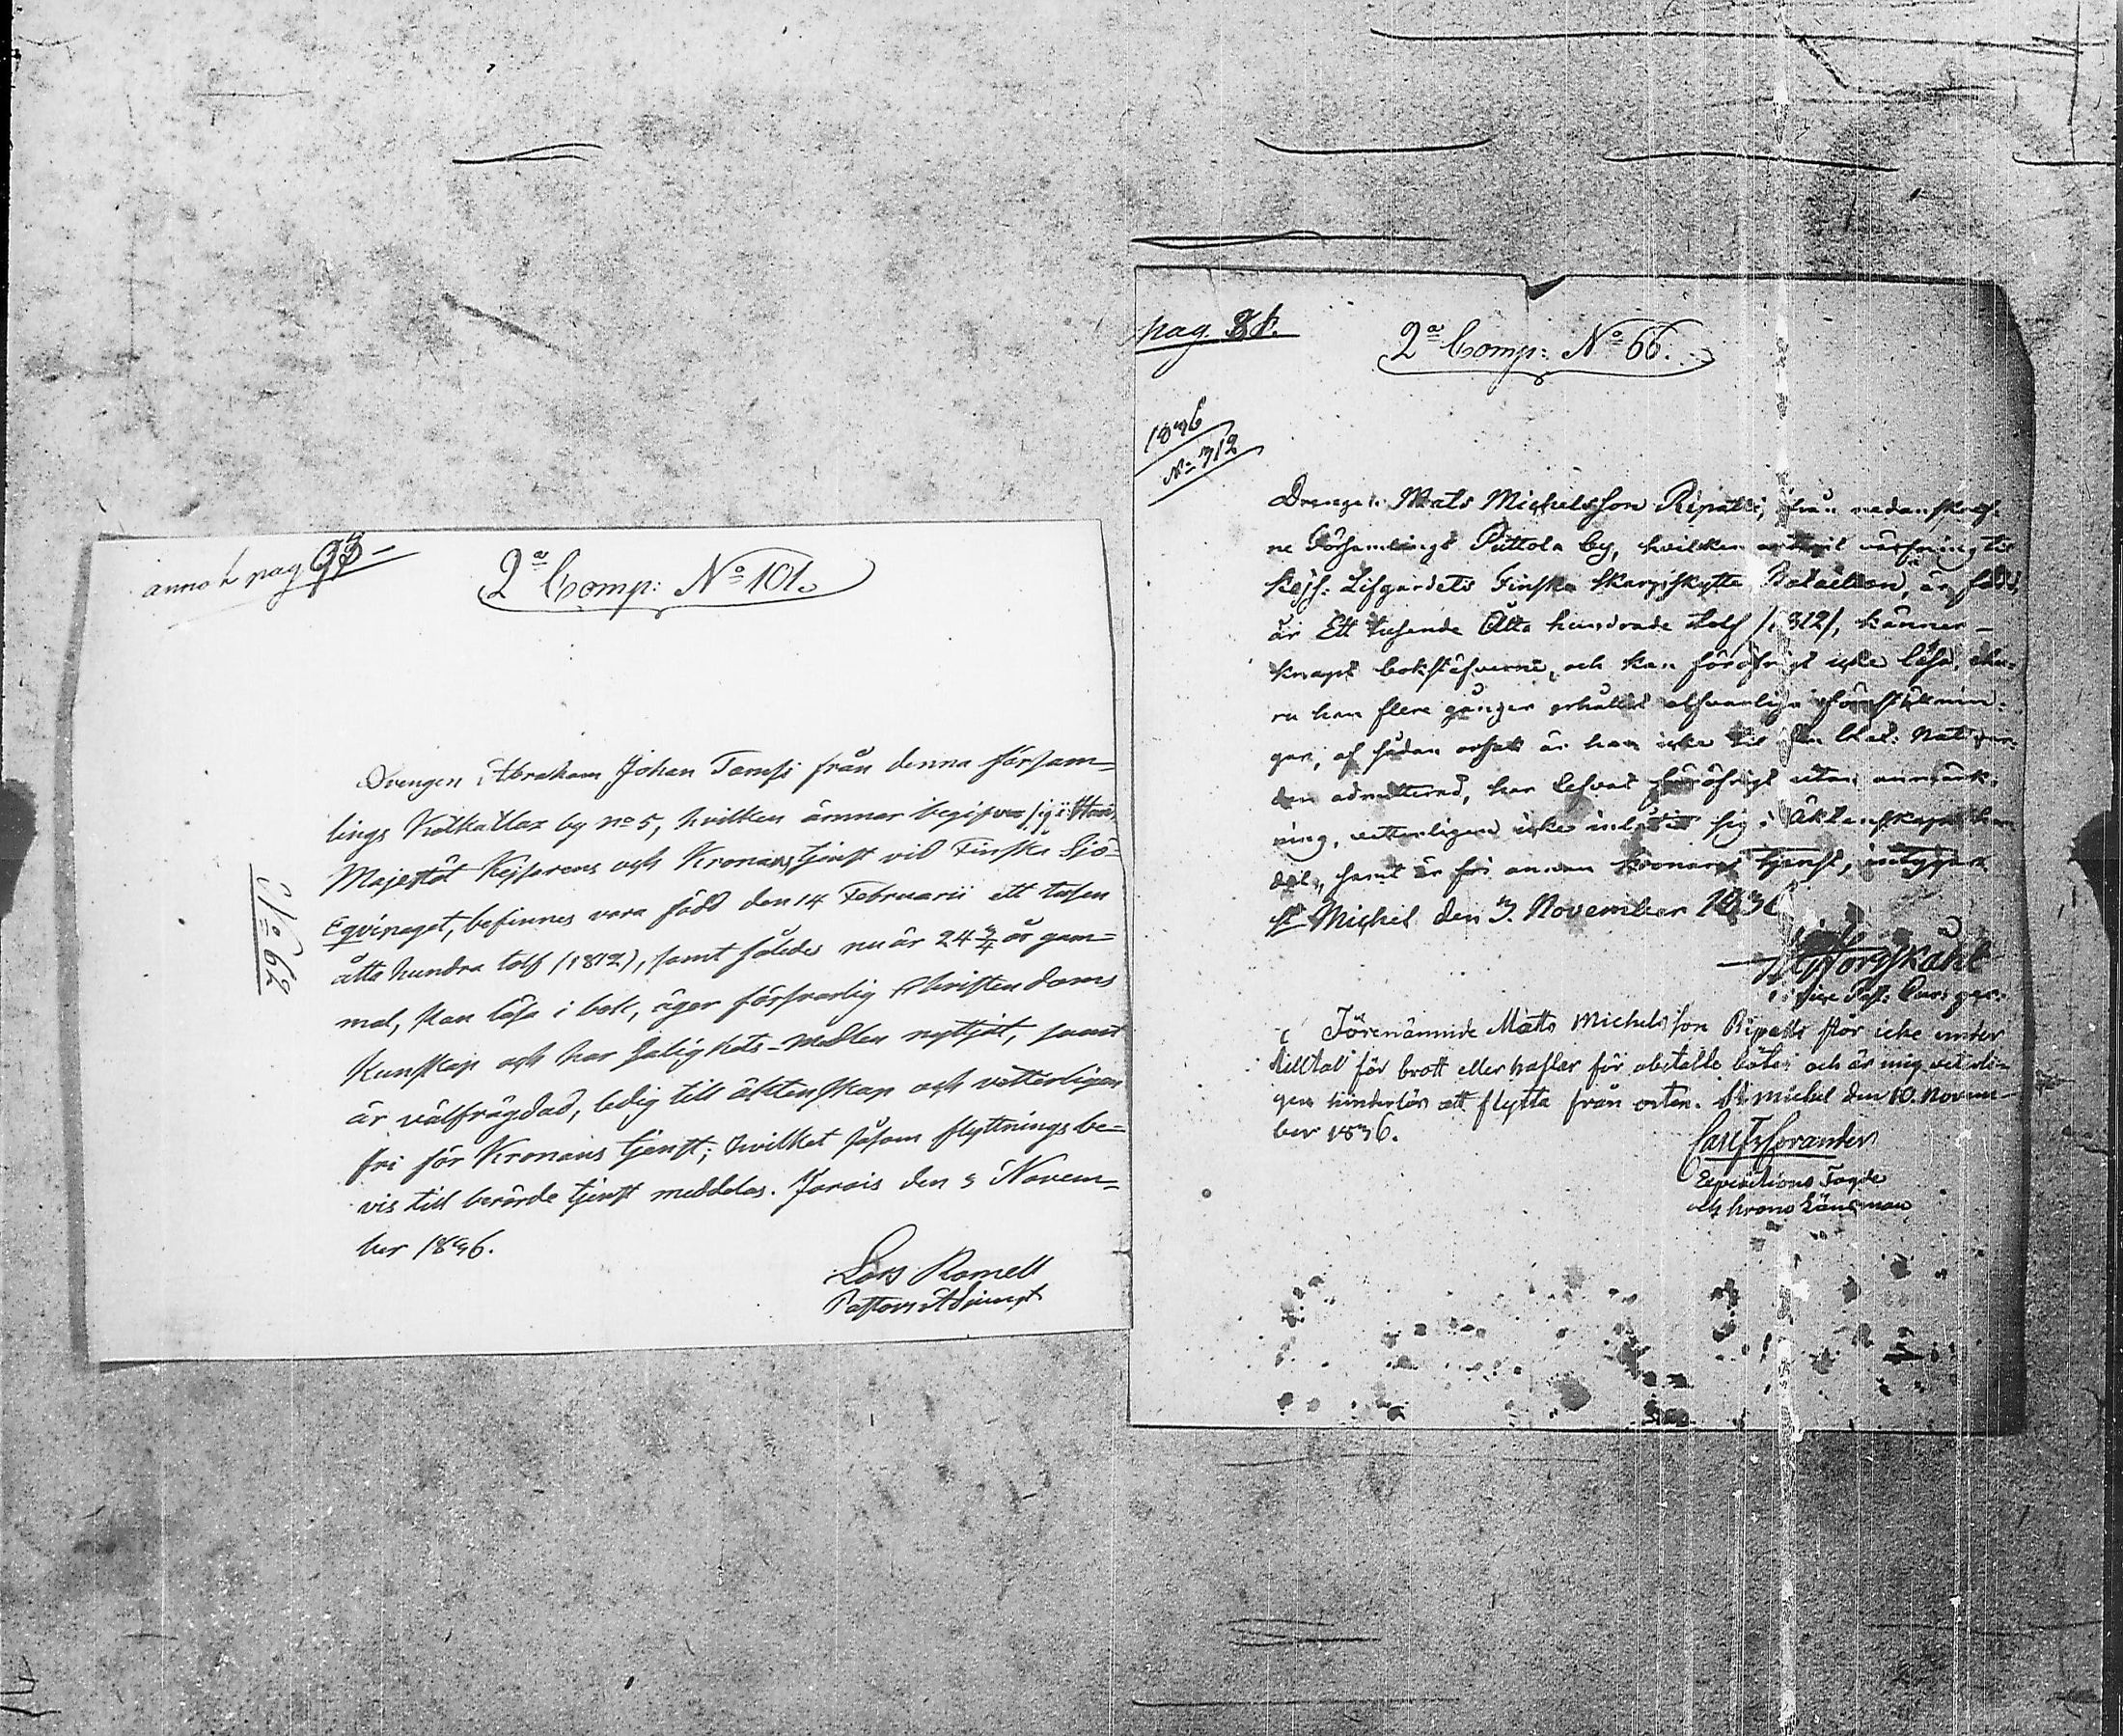 annot pag 93
2ª Comp: Nº 101.
Nº 62
Drengen Abraham Johan Tamsi från denna försam=
lings Kolkallax by nº 5, hvilken ämnar begifva sig i Hans
Majestät Kejsarens och Kronans tjenst vid Finska Sjö=
Eqvipaget, befinnes vara född den 14 Februarii ett tusen
åtta hundra tolf (1812), samt således nu är 24 3/4 år gam=
mal, kan läsa i bok, äger försvarlig Christendoms
Kunskap och har Salighets-Medlen nyttjat, samt
är välfrägdad, ledig till äktenskap och vetterligen
fri för Kronans tjenst; hvilket såsom flyttningsbe=
vis till berörde tjenst meddelas. Jorois den 3 Novem=
ber 1836.
Lars Romell
Pastors Adjunct
pag.
2ª Comp: Nº 66.
1836
Nº 312
Drengen Mats Michelsson Ripatti, från nedanskref-
ne Församlings Pittola by, hvilken värfning til
Kejs: Lifgardets Finska Skarpskytte Bataillon, är född
år Ett tusende Åtta hundrade tolf /1812/, känner
knapt bokstäfverne, och kan föröfrigt icke läsa, ehu-
ru han flere gånger erhållit alfvarliga föreställnin-
gar, af sådan orsak är han icke til Natvar-
den admitterad, har lefvat föröfrigt utan anmärk-
ning, vetterligen icke inlåtit sig i Äktenskaps han-
del, samt är fri annan Kronans tjenst, intygar
St Michel den 3. November 1836
Forsskåhl
Vice Past:
Förenämnde Matts Michelsson Ripatti står icke under
tilltal för brott eller häftar för obetalte böter och är mig veterli-
gen hinderlös att flytta från orten. St Michel den 10. Novem-
ber 1836.
Expeditions Fogde
och Krono Länsman